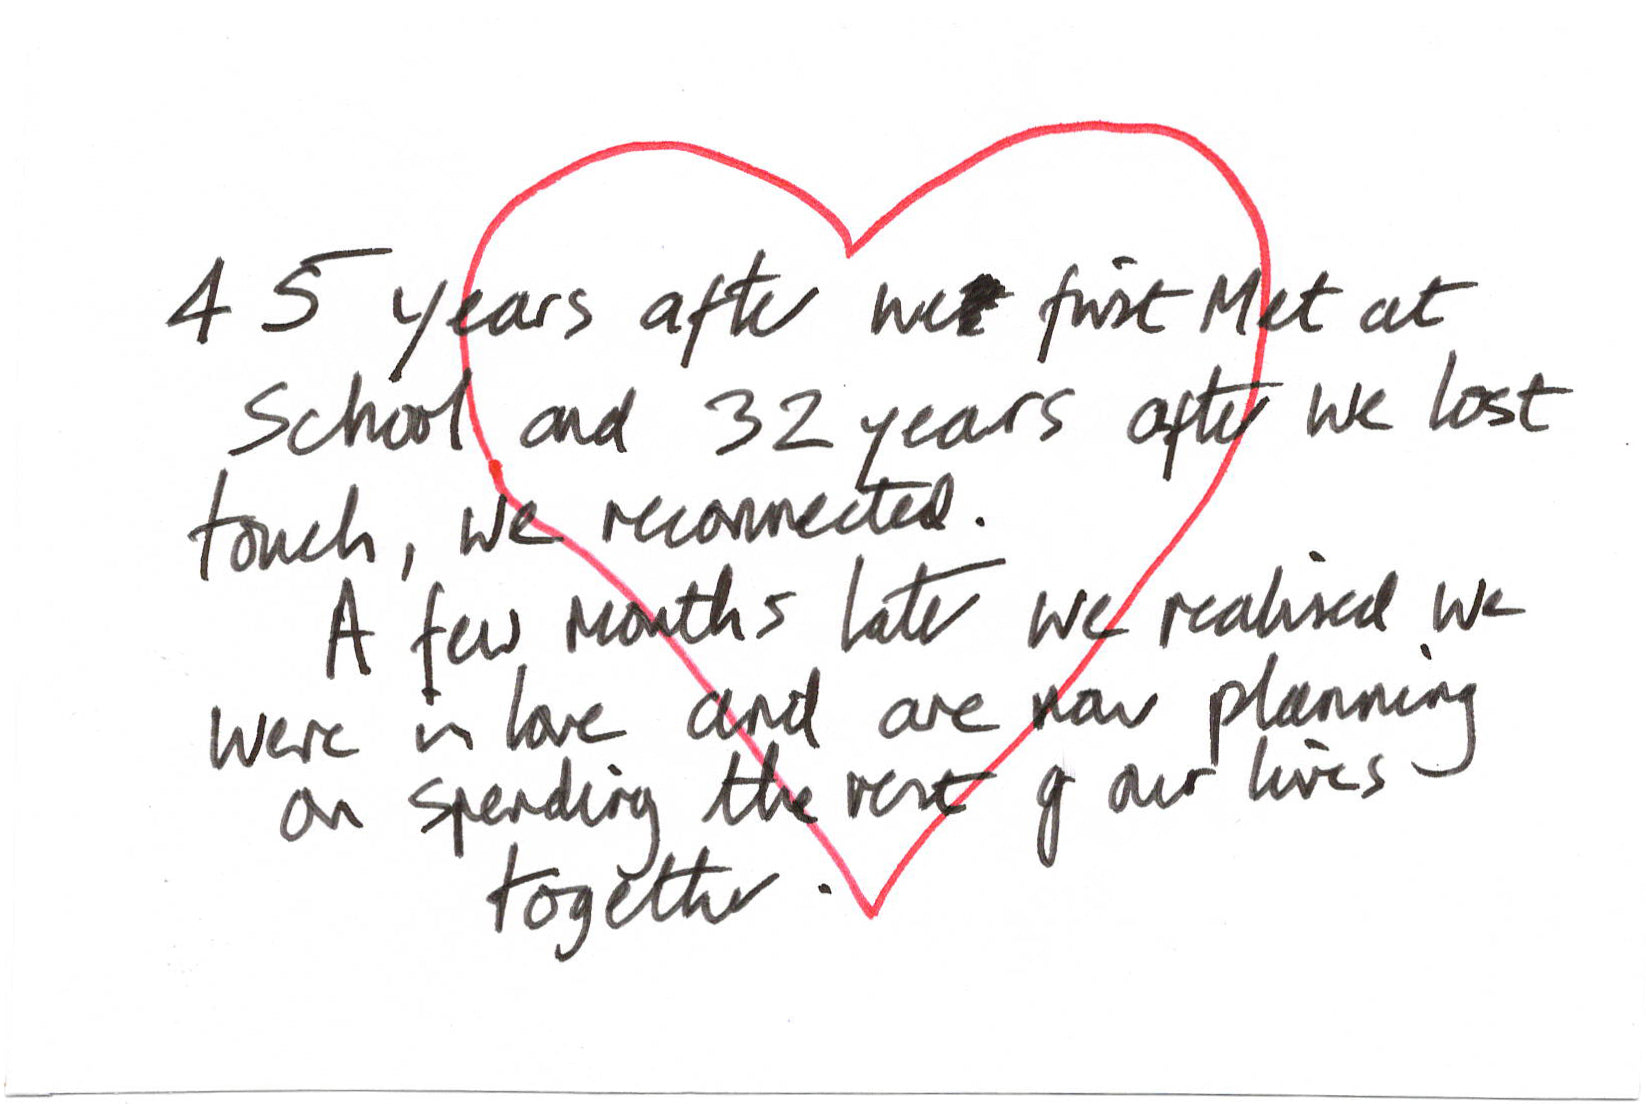 45 years after we first met at
School and 32 years after we lost
touch, we reconnected.
A few months later we realised we
were in love and are now planning
on spending the rest of our lives
together.